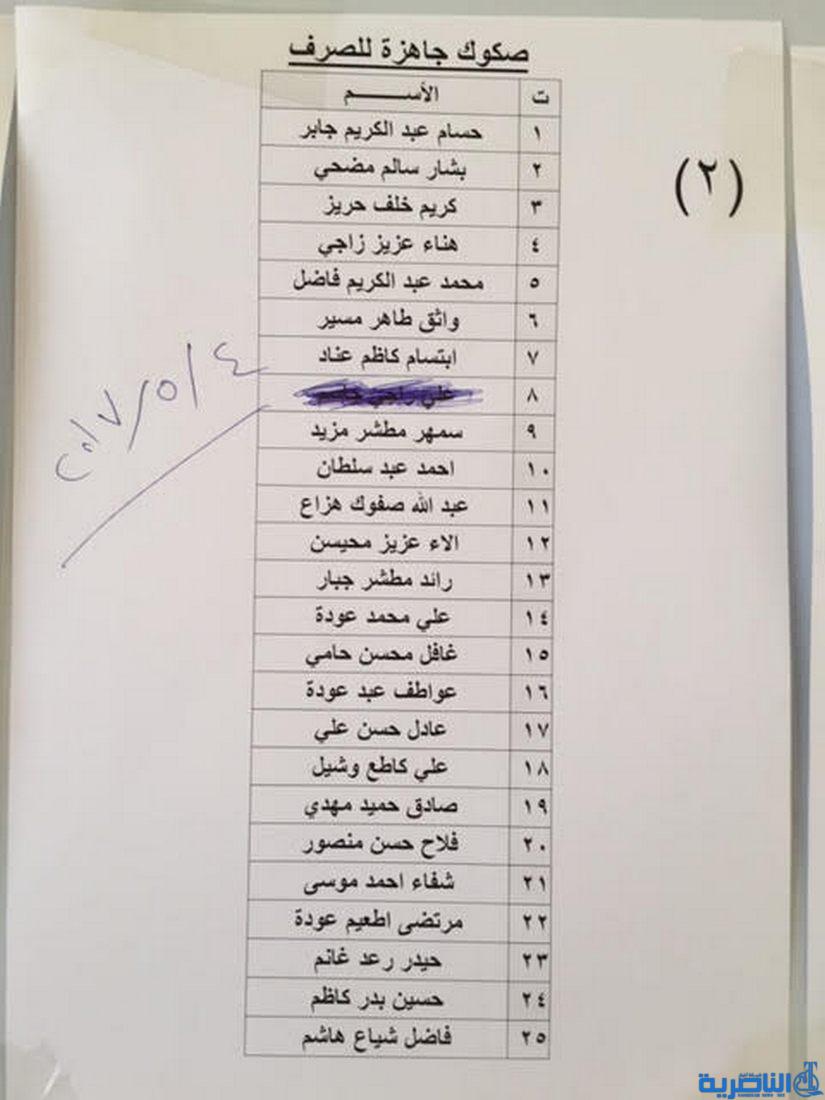 صكوك جاهزة للصرف
ت الأســـــم
(٢)
١ حسام عبد الكريم جابر
٢ بشار سالم مضحي
٣ كريم خلف حريز
٤ هناء عزيز زاجي
٥ محمد عبد الكريم فاضل
٦ واثق طاهر مسير
٧ ابتسام كاظم عناد
٨ علي راجي
٩ سمهر مطشر مزيد
١٠ احمد عبد سلطان
١١ عبد الله صفوك هزاع
١٢ الاء عزيز محيسن
١٣ رائد مطشر جبار
١٤ علي محمد عودة
١٥ غافل محسن حامي
١٦ عواطف عبد عودة
١٧ عادل حسن علي
١٨ علي كاطع وشيل
١٩ صادق حميد مهدي
٢٠ فلاح حسن منصور
٢١ شفاء احمد موسى
٢٢ مرتضى اطعيم عودة
٢٣ حيدر رعد غانم
٢٤ حسين بدر كاظم
٢٥ فاضل شياع هاشم
٢٠١٧/٥/٤
الناصرية